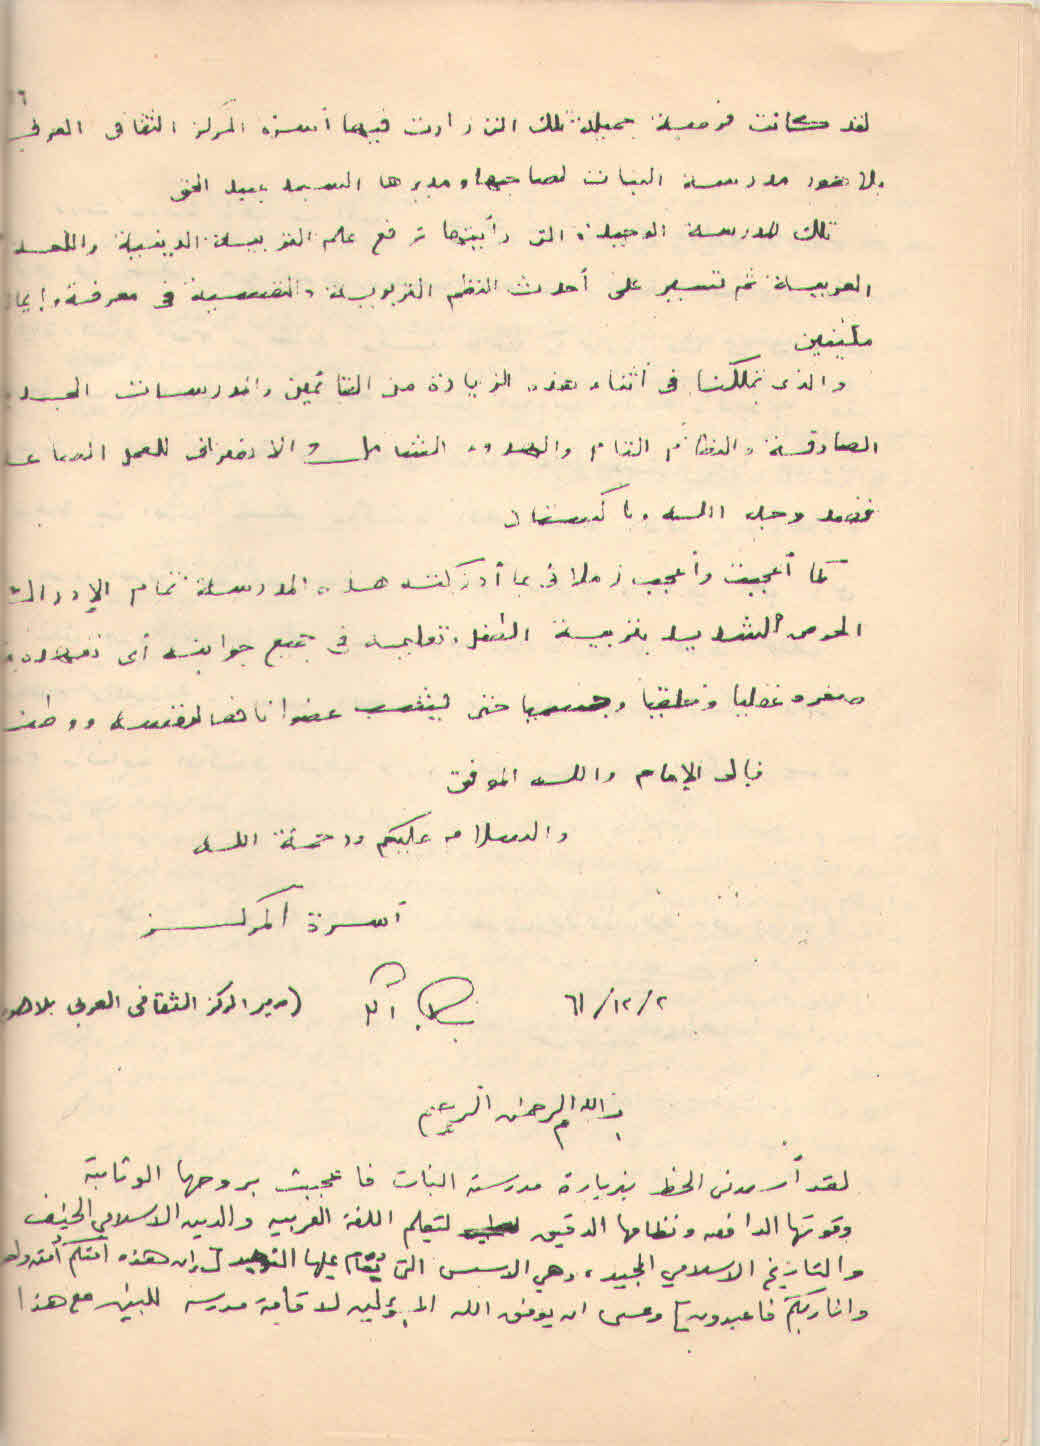 ٦
لقد كانت فرصة جميلة تلك التى زارت فيها أسرة المركز الثقافى العربى
بلاهور مدرسة البنات لصاحبها ومديرها السيد عبد الحق
تلك المدرسة الوحيدة التى رأيتها ترفع علم التربية الدينية واللغة
العربية ثم تسير على أحدث النظم التربوية والنفسية فى معرفة وإيمان
متينين
والذى تملكنا فى أثناء هذه الزيارة من القائمين والمدرسات
الصادقة والنظام التام والهدوء الشامل والانصراف للعمل
وجه الله وباكستان
كما أعجبت وأعجب زملائى بما أدركته هذه المدرسة تمام الإدراك
الحرص الشديد بتربية الطفل وتعليمه فى جميع جوانبه أى
صغره عقليا وخلقيا وجسميا حتى عضوا نافعا لنفسه ووطنه
فإلى الإمام والله الموفق
والسلام عليكم ورحمة الله
أسرة المركز
٢/١٢/٦١ (مدير المركز الثقافى العربى بلاهور
بسم الله الرحمن الرحيم
لقد أسعدنى الحظ بزيارة مدرسة البنات فاعجبت بروحها الوثابة
وقوتها الدافعه ونظامها الدقيق لتعليم اللغة العربيه والدين الاسلامي الحنيف
والتاريخ الاسلامي المجيد، وهي الاسس التى يقام عليها التوحيد [ إن هذه امتكم أمة واحدة
وانا ربكم فاعبدون ] وعسى ان يوفق الله لاقامة مدرسه للبنين مع هذا